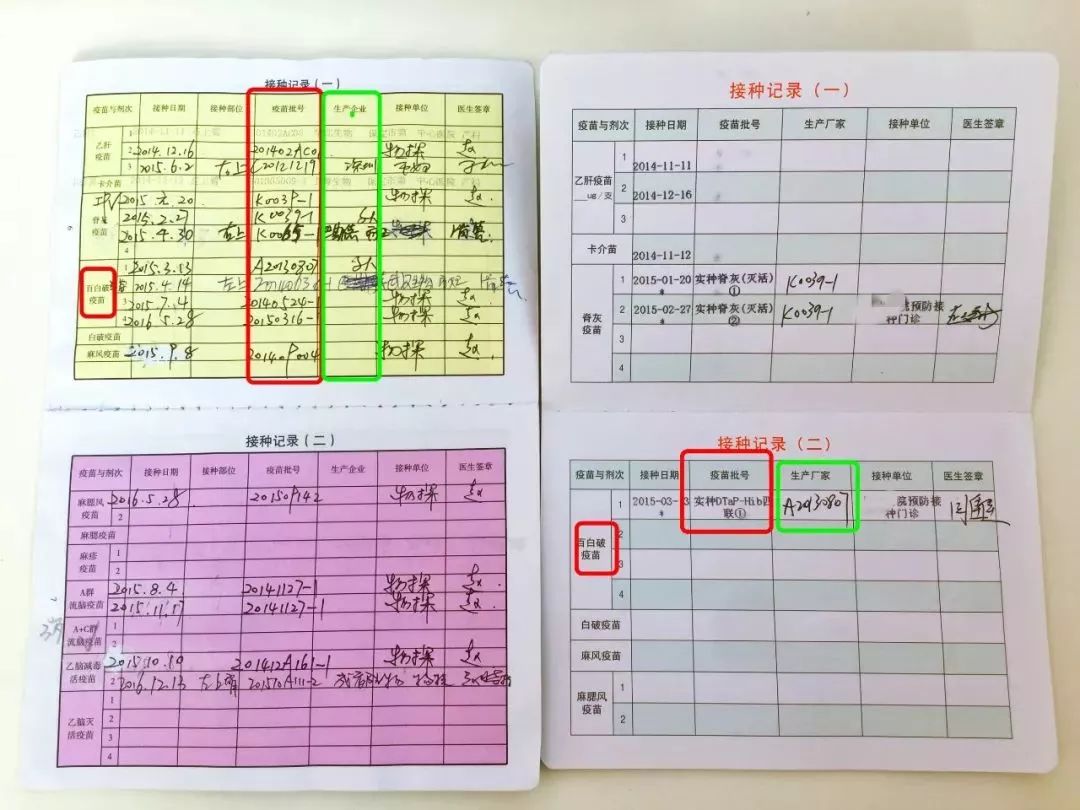 接种记录（一）
疫苗与剂次 接种日期 接种部位 疫苗批号 生产企业 接种单位 医生签章
乙肝疫苗
1
2 2014.12.16 201402AC01 物探
3 2015.6.2 右上 C20121219 深圳
卡介苗
IPV 2015 元.20 K0039-1 物探
脊灰疫苗
2015.2.27 K0039-1
2015.4.30 右上
4
百白破疫苗
1 2015.3.13 A20130807
2015.4.14 左上
3 2015.7.4 20140524-1 物探
2016.5.28 20150316-1 物探
白破疫苗
麻风疫苗 2015.9.8 201409004 物探
接种记录（二）
疫苗与剂次 接种日期 接种部位 疫苗批号 生产企业 接种单位 医生签章
麻腮风疫苗 2016.5.28 20150942 物探
2
麻腮疫苗
麻疹疫苗
1
2
A群流脑疫苗
2015.8.4 20141127-1 物探
2015.11.17 20141127-1 物探
A+C群流脑疫苗
1
2
乙脑减毒活疫苗
2015.10.10 201412A161-1 物探
2 2016.12.13 201510A111-2
乙脑灭活疫苗
1
2
3
4
接种记录（一）
疫苗与剂次 接种日期 疫苗批号 生产厂家 接种单位 医生签章
乙肝疫苗
__ug/支
1 2014-11-11
2 2014-12-16
3
卡介苗 2014-11-12
脊灰疫苗
1 2015-01-20 * 实种脊灰(灭活)① K0039-1
2 2015-02-27 * 实种脊灰(灭活)② K0039-1 院预防接种门诊
3
4
接种记录（二）
疫苗与剂次 接种日期 疫苗批号 生产厂家 接种单位 医生签章
百白破疫苗
1 2015-03-13 * 实种DTaP-Hib四联① A20130807 院预防接种门诊
2
3
4
白破疫苗
麻风疫苗
麻腮风疫苗
1
2